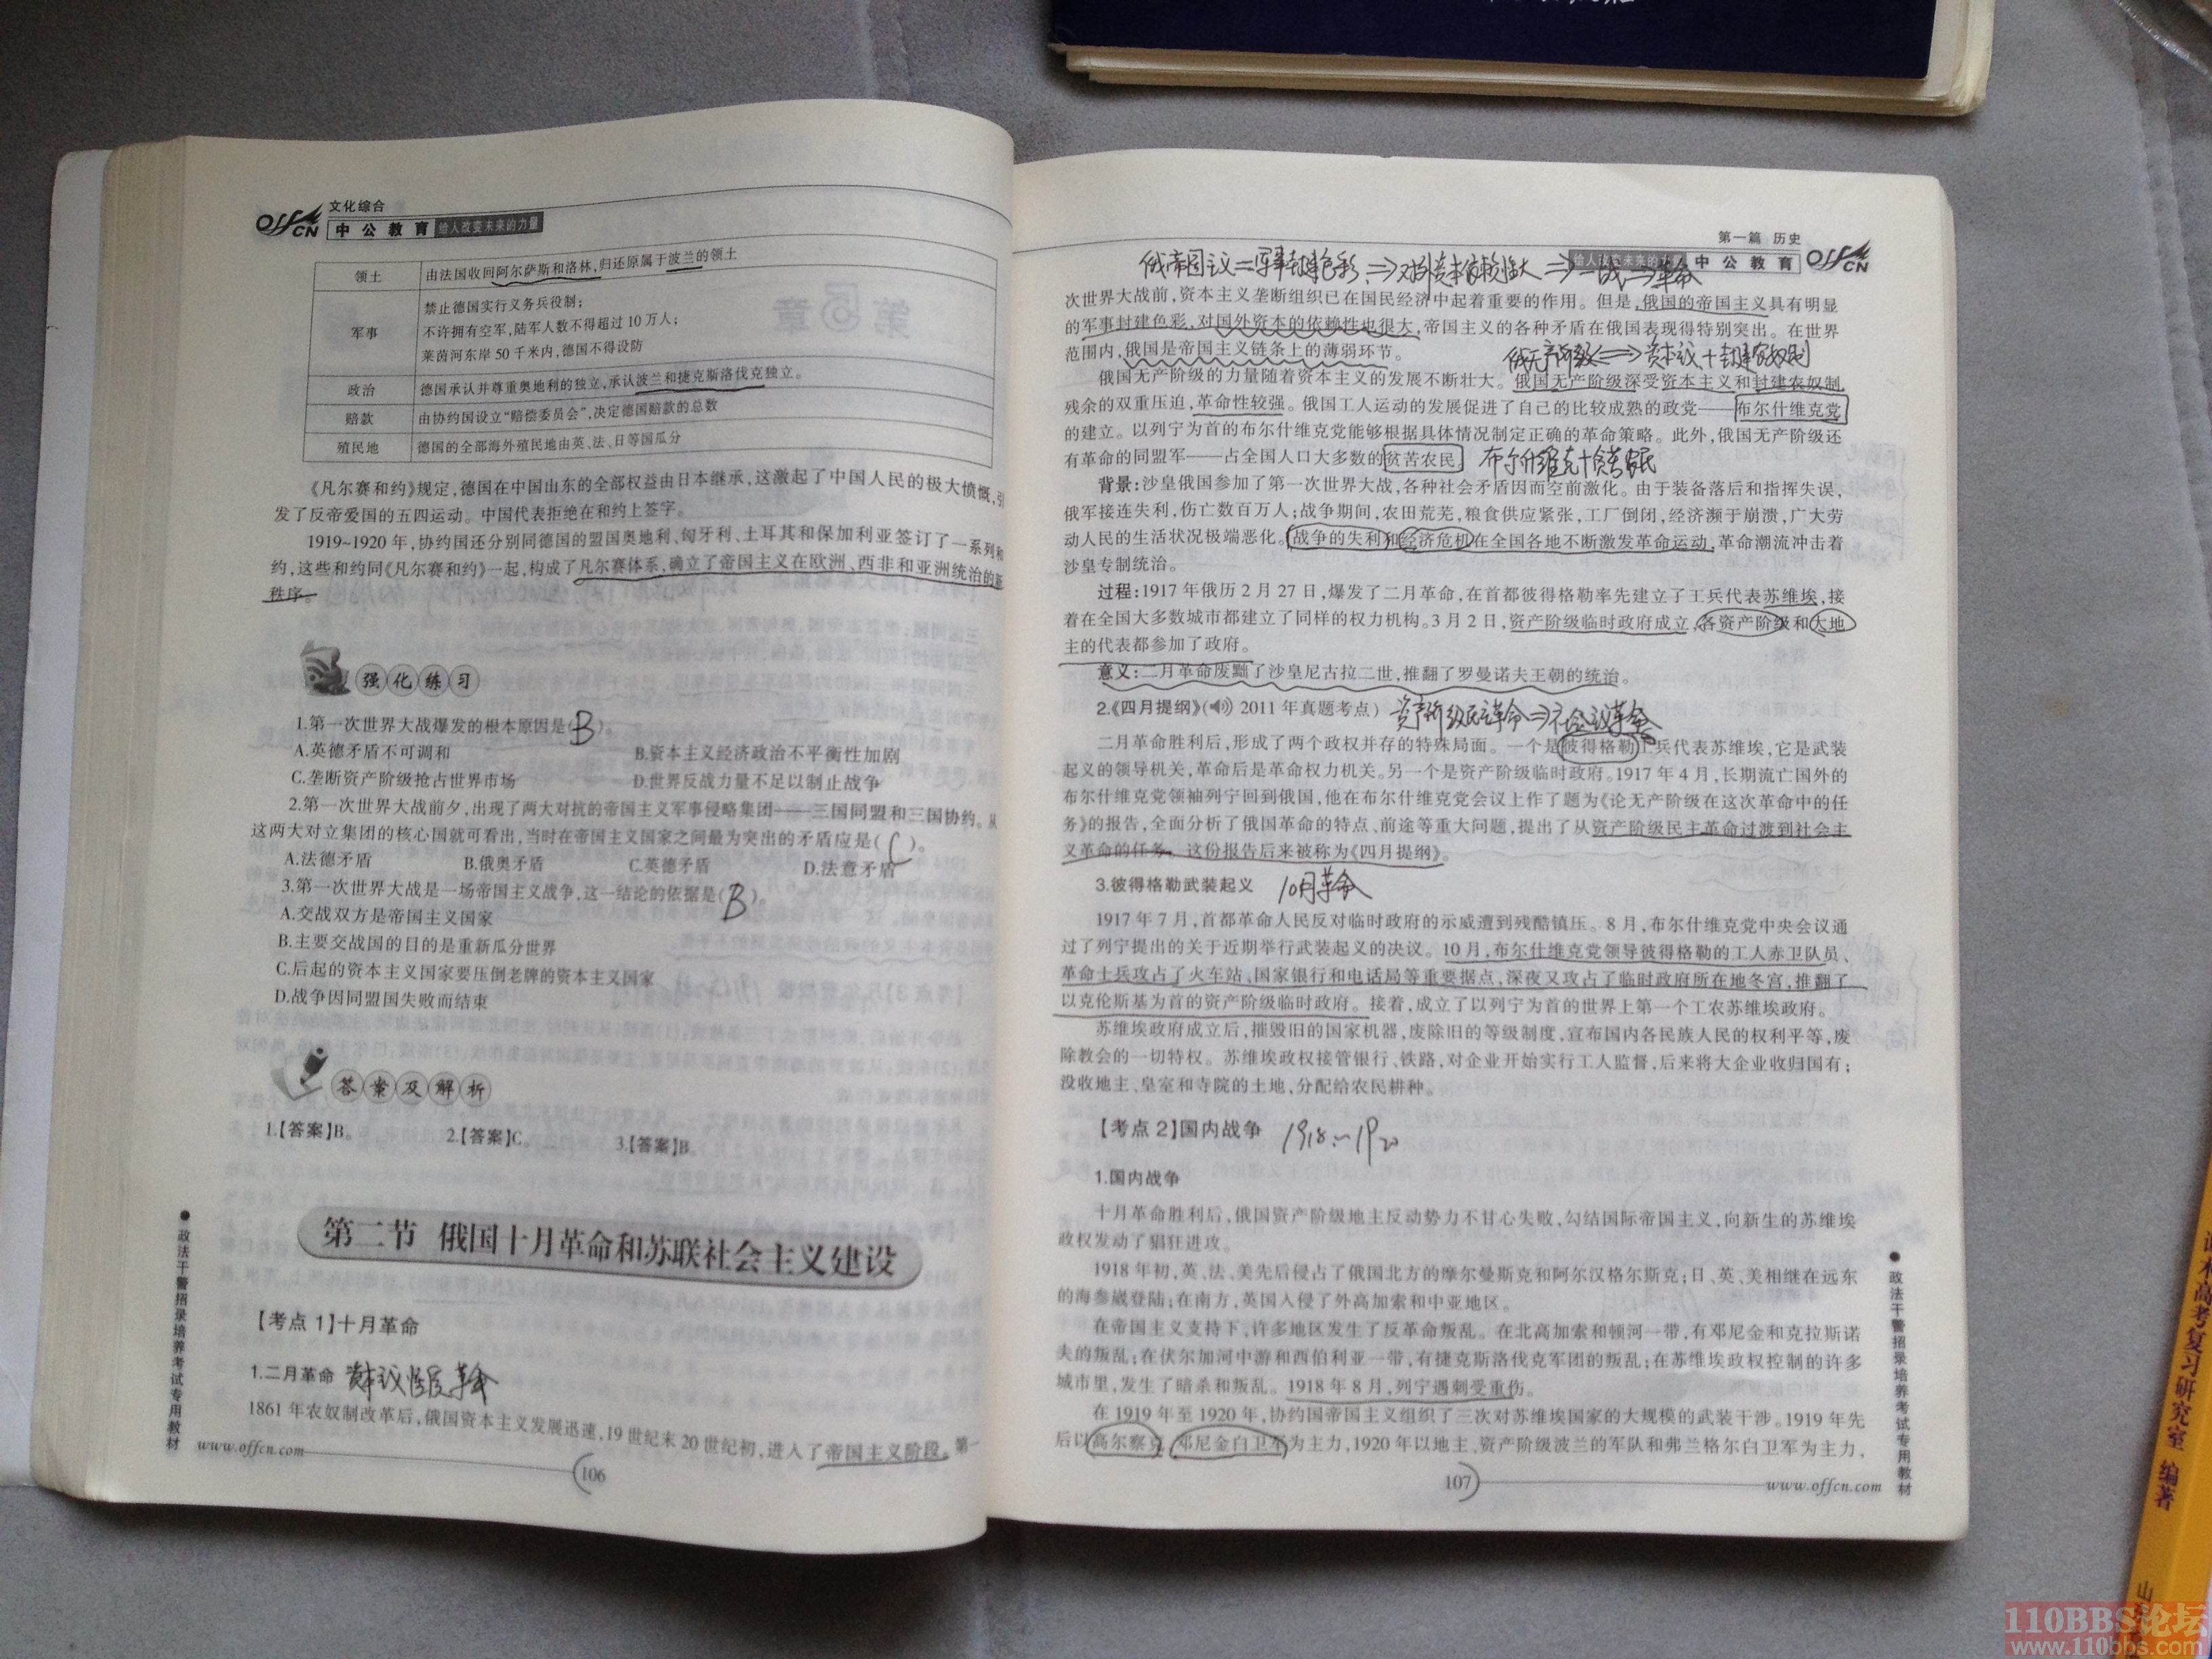 文化综合
OffCN 中公教育 给人改变未来的力量
领土 由法国收回阿尔萨斯和洛林,归还原属于波兰的领土
军事 禁止德国实行义务兵役制;
不许拥有空军,陆军人数不得超过10万人;
莱茵河东岸50千米内,德国不得设防
政治 德国承认并尊重奥地利的独立,承认波兰和捷克斯洛伐克独立。
赔款 由协约国设立“赔偿委员会”,决定德国赔款的总数
殖民地 德国的全部海外殖民地由英、法、日等国瓜分
《凡尔赛和约》规定,德国在中国山东的全部权益由日本继承,这激起了中国人民的极大愤慨,引
发了反帝爱国的五四运动。中国代表拒绝在和约上签字。
1919~1920年,协约国还分别同德国的盟国奥地利、匈牙利、土耳其和保加利亚签订了一系列和
约,这些和约同《凡尔赛和约》一起,构成了凡尔赛体系,确立了帝国主义在欧洲、西非和亚洲统治的新
秩序。
强化练习
1.第一次世界大战爆发的根本原因是(B)。
A.英德矛盾不可调和 B.资本主义经济政治不平衡性加剧
C.垄断资产阶级抢占世界市场 D.世界反战力量不足以制止战争
2.第一次世界大战前夕,出现了两大对抗的帝国主义军事侵略集团——三国同盟和三国协约。从
这两大对立集团的核心国就可看出,当时在帝国主义国家之间最为突出的矛盾应是(C)。
A.法德矛盾 B.俄奥矛盾 C.英德矛盾 D.法意矛盾
3.第一次世界大战是一场帝国主义战争,这一结论的依据是(B)。
A.交战双方是帝国主义国家
B.主要交战国的目的是重新瓜分世界
C.后起的资本主义国家要压倒老牌的资本主义国家
D.战争因同盟国失败而结束
答案及解析
1.【答案】B。 2.【答案】C。 3.【答案】B。
第二节 俄国十月革命和苏联社会主义建设
【考点1】十月革命
1.二月革命
1861年农奴制改革后,俄国资本主义发展迅速,19世纪末20世纪初,进入了帝国主义阶段。第一
www.offcn.com
106
政法干警招录培养考试专用教材
第一篇 历史
给人改变未来的力量 中公教育 OffCN
俄帝国主义=军事封建色彩⇒对外资本依赖性大⇒一战⇒革命
次世界大战前,资本主义垄断组织已在国民经济中起着重要的作用。但是,俄国的帝国主义具有明显
的军事封建色彩,对国外资本的依赖性也很大,帝国主义的各种矛盾在俄国表现得特别突出。在世界
范围内,俄国是帝国主义链条上的薄弱环节。
俄国无产阶级的力量随着资本主义的发展不断壮大。俄国无产阶级深受资本主义和封建农奴制
残余的双重压迫,革命性较强。俄国工人运动的发展促进了自己的比较成熟的政党——布尔什维克党
的建立。以列宁为首的布尔什维克党能够根据具体情况制定正确的革命策略。此外,俄国无产阶级还
有革命的同盟军——占全国人口大多数的贫苦农民 布尔什维克+贫苦农民
背景:沙皇俄国参加了第一次世界大战,各种社会矛盾因而空前激化。由于装备落后和指挥失误,
俄军接连失利,伤亡数百万人;战争期间,农田荒芜,粮食供应紧张,工厂倒闭,经济濒于崩溃,广大劳
动人民的生活状况极端恶化。战争的失利和经济危机在全国各地不断激发革命运动,革命潮流冲击着
沙皇专制统治。
过程:1917年俄历2月27日,爆发了二月革命,在首都彼得格勒率先建立了工兵代表苏维埃,接
着在全国大多数城市都建立了同样的权力机构。3月2日,资产阶级临时政府成立,各资产阶级和大地
主的代表都参加了政府。
意义:二月革命废黜了沙皇尼古拉二世,推翻了罗曼诺夫王朝的统治。
2.《四月提纲》(2011年真题考点) 资产阶级民主革命⇒社会主义革命
二月革命胜利后,形成了两个政权并存的特殊局面。一个是彼得格勒工兵代表苏维埃,它是武装
起义的领导机关,革命后是革命权力机关。另一个是资产阶级临时政府。1917年4月,长期流亡国外的
布尔什维克党领袖列宁回到俄国,他在布尔什维克党会议上作了题为《论无产阶级在这次革命中的任
务》的报告,全面分析了俄国革命的特点、前途等重大问题,提出了从资产阶级民主革命过渡到社会主
义革命的任务。这份报告后来被称为《四月提纲》。
3.彼得格勒武装起义 10月革命
1917年7月,首都革命人民反对临时政府的示威遭到残酷镇压。8月,布尔什维克党中央会议通
过了列宁提出的关于近期举行武装起义的决议。10月,布尔什维克党领导彼得格勒的工人赤卫队员、
革命士兵攻占了火车站、国家银行和电话局等重要据点,深夜又攻占了临时政府所在地冬宫,推翻了
以克伦斯基为首的资产阶级临时政府。接着,成立了以列宁为首的世界上第一个工农苏维埃政府。
苏维埃政府成立后,摧毁旧的国家机器,废除旧的等级制度,宣布国内各民族人民的权利平等,废
除教会的一切特权。苏维埃政权接管银行、铁路,对企业开始实行工人监督,后来将大企业收归国有;
没收地主、皇室和寺院的土地,分配给农民耕种。
【考点2】国内战争 1918~1920
1.国内战争
十月革命胜利后,俄国资产阶级地主反动势力不甘心失败,勾结国际帝国主义,向新生的苏维埃
政权发动了猖狂进攻。
1918年初,英、法、美先后侵占了俄国北方的摩尔曼斯克和阿尔汉格尔斯克;日、英、美相继在远东
的海参崴登陆;在南方,英国入侵了外高加索和中亚地区。
在帝国主义支持下,许多地区发生了反革命叛乱。在北高加索和顿河一带,有邓尼金和克拉斯诺
夫的叛乱;在伏尔加河中游和西伯利亚一带,有捷克斯洛伐克军团的叛乱;在苏维埃政权控制的许多
城市里,发生了暗杀和叛乱。1918年8月,列宁遇刺受重伤。
在1919年至1920年,协约国帝国主义组织了三次对苏维埃国家的大规模的武装干涉。1919年先
后以高尔察克、邓尼金白卫军为主力,1920年以地主、资产阶级波兰的军队和弗兰格尔白卫军为主力,
107
www.offcn.com
政法干警招录培养考试专用教材
高考复习研究室 编著
山
110BBS论坛
www.110bbs.com